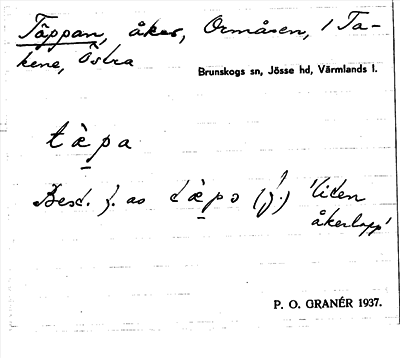 Täppan, åker, Ormåsen, 1 Ta-
kene, Östra
Brunskogs sn, Jösse hd, Värmlands l.
tæ̀pa
Best. f. as tæ̀po (f.) 'liten
åkerlapp'
P. O. GRANÉR 1937.